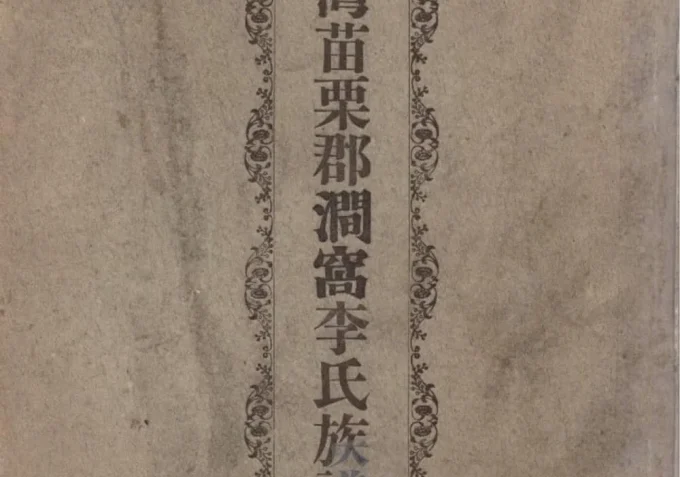 灣苗栗郡澗窩李氏族